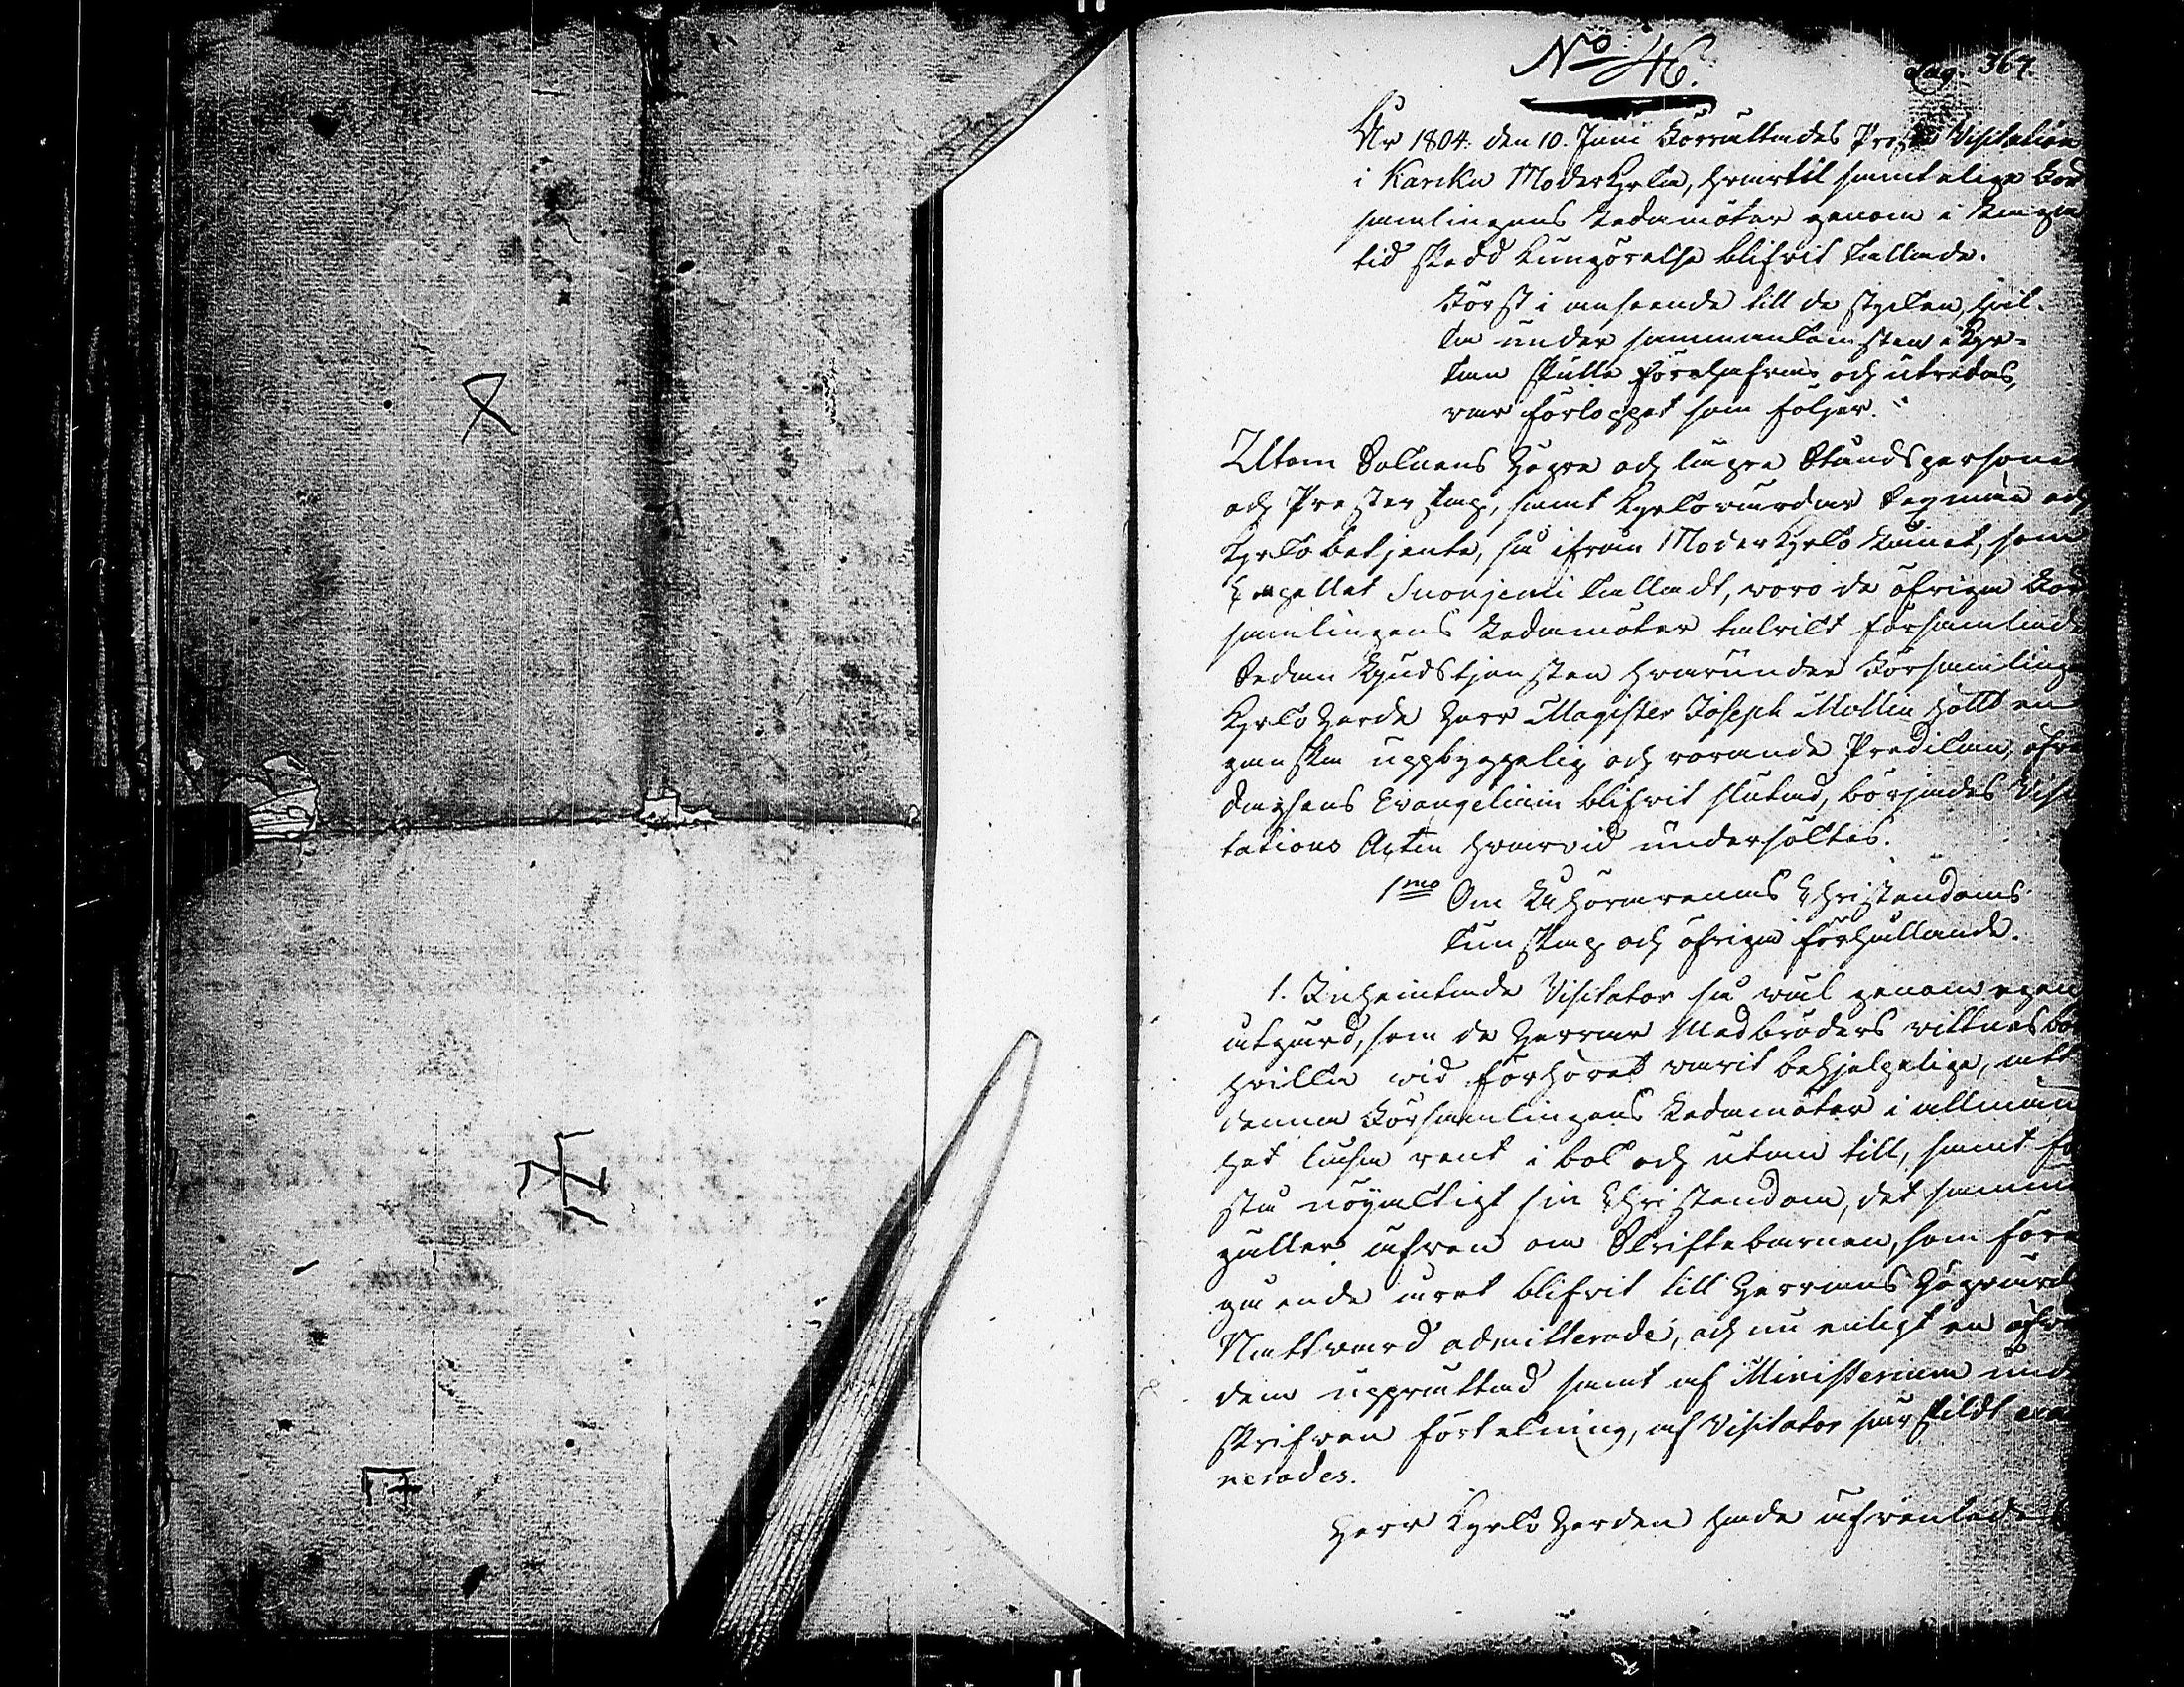 No 46.
pag. 367.
År 1804. den 10. Junii Förrättades Prosts Visitation
i Karcku Moderkyrka, hwartil samtelige För
samlingens Ledamöter genom i laga
tid skedd kungörelse blifvit kallade.
Först i anseende till de stycken, hvil-
ka under sammankomsten i Kyr-
kan skulle förehafvas och utredas,
var förloppet som följer.
Utom Soknens högre och lägre Ståndspersoner
och Presterskap, samt Kyrkovärdar Sexmän och
Kyrkobetjente, så ifrån Moderkyrko Laget, som
Capellet Suonjemi kalladt, woro de öfriga För
samlingens Ledamöter talrikt församlade
Sedan Gudstjensten hvarunder Församlingens
Kyrkoherde Herr Magister Joseph Mollin hållt en
ganska uppbyggelig och rörande Predikan, öfver
dagsens Evangelium blifvit slutad, börjades Visi
tations Acten hvarvid underhöltes.
1mo Om Åhörarenas Christendoms
kunskap och öfriga förhållande.
1. Inhemtade Visitator så wäl genom egen
åtgärd, som de Herrar Medbröders wittnesbörd
hvilka wid förhöret varit behjelpelige, att
denna Församlingens Ledamöter i allmän
het läsa rent i bok och utan till, samt för
stå nöjaktigt sin Christendom, det samma
gäller äfven om Skriftebarnen, som före
gående året blifvit till Herrans Högvärdiga
Nattvard admitterade, och nu enligt en öfver
dem upprättad samt af Ministerium under
skrifven förtekning, af Visitator särskildt exami
nerades.
Herr Kyrkoherden hade äfvenledes